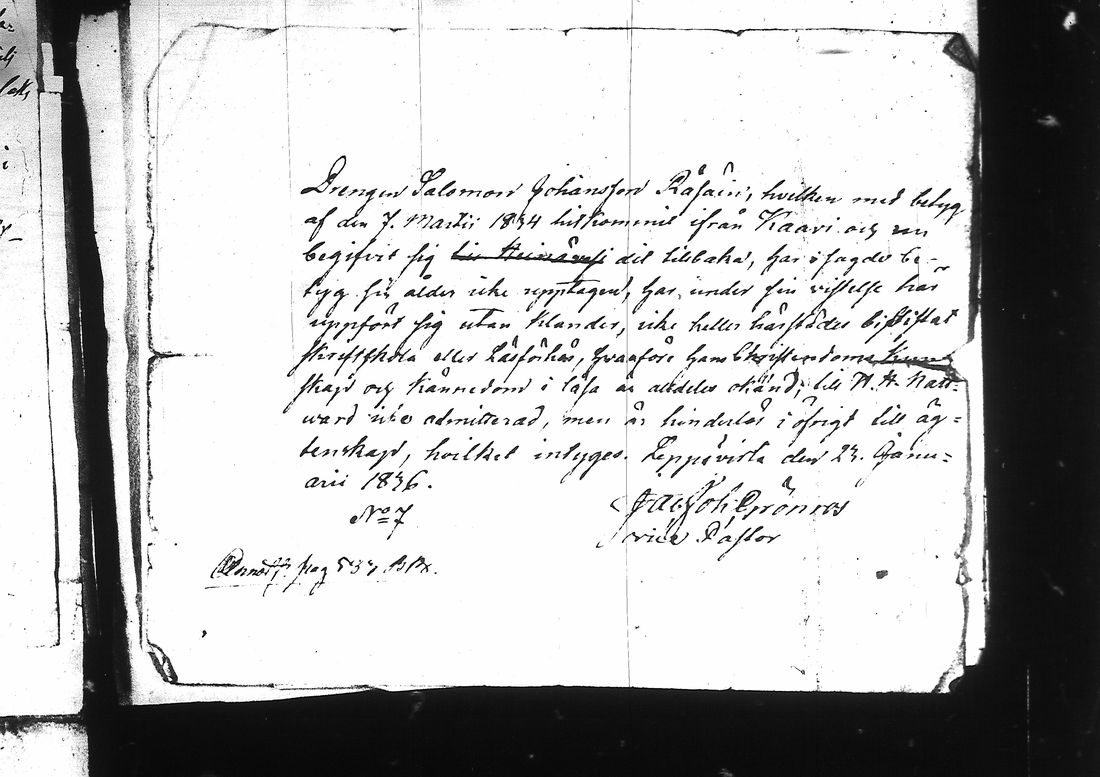 Drengen Salomon Johansson Räsäin, hvilken med betyg
af den 7. Martii 1834 hitkommit ifrån Kaavi och nu
begifvit sig till Heinävesi dit tillbaka, har i sagde be-
tyg för ålder icke upptagen, har under sin vistelse här
uppfört sig utan klander, icke heller härstädes bististat
skriftskola eller Läsförhör, hvarföre hans Christendoms kun
skap och kännedom i läsa är alldeles okänd; till H. H. Natt-
ward icke admitterad, men är hinderlös i öfrigt till äg-
tenskap, hvilket intyges. Leppävirta den 23. Janu-
arii 1836.
Jac. Joh. Grönroos
vice Pastor
No 7
pag 537